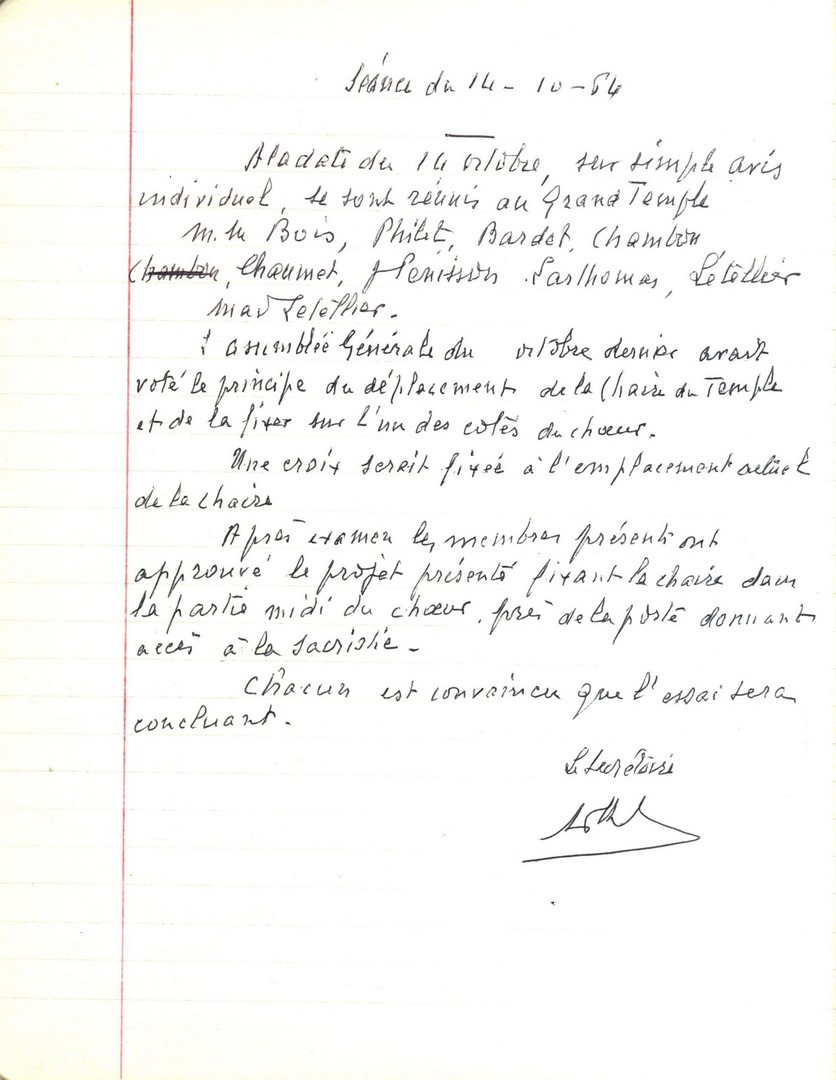 Séance du 14 - 10 - 54
A la date du 14 octobre, sur simple avis
individuel, se sont réunis au Grand Temple
M.M Bois, Philit, Bardet, Chambon,
Chambon, Chaumet, Sarthomas, Letellier
Mad Letellier.
L'assemblée Générale du octobre dernier avait
voté le principe du déplacement de la Chaire du Temple
et de la fixer sur l'un des cotés du chœur.
Une croix serait fixée à l'emplacement actuel
de la chaire
Après examen les membres présents ont
approuvé le projet présenté fixant la chaire dans
la partie midi du chœur, près de la porte donnant
accès à la sacristie.
Chacun est convaincu que l'essai sera
concluant.
Le Secrétaire